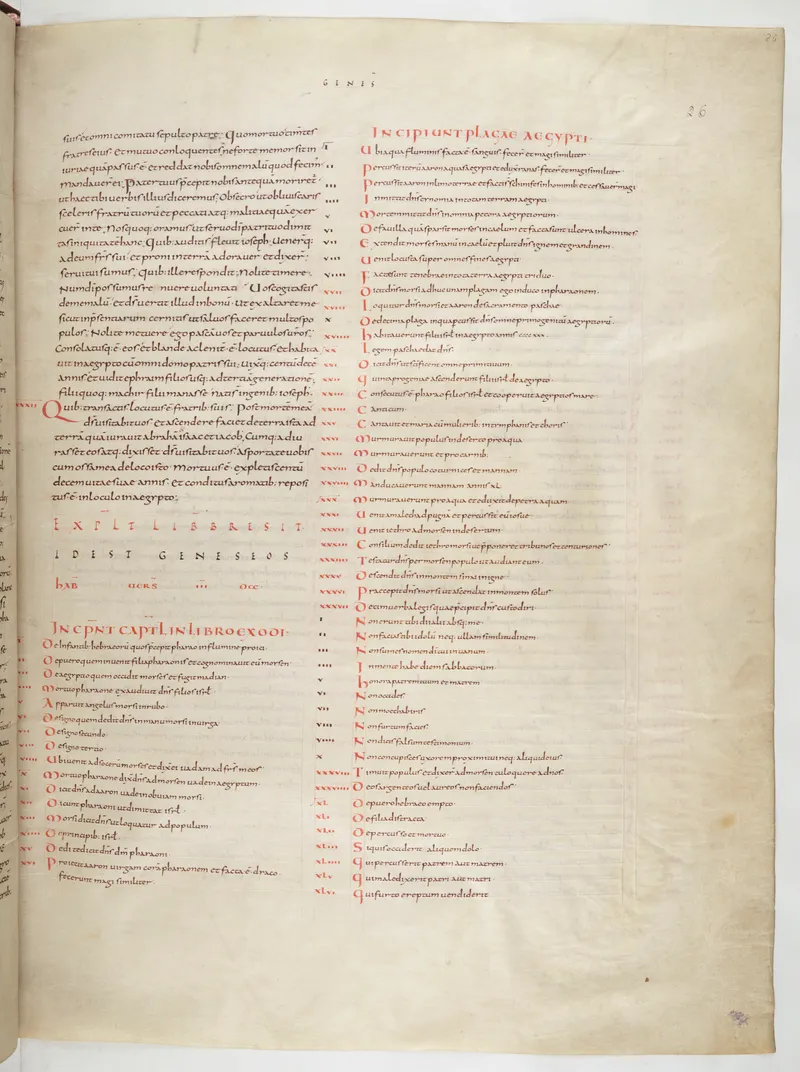 GENES
26
suis et omni comitatu sepulto patre. Quo mortuo timentes
fratres eius et mutuo conloquentes ne forte memor sit in
iuriae quam passus ē et reddat nobis omne malū quod fecim;
mandaverē; Pater tuus p̄cepit nobis anteq̄ moreret̄
ut haec tibi verbis illius diceremus; Obsecro ut obliviscaris
sceleris fratrū tuorū et peccati atq; malitiae quā exer
cuer̄ in te; Nos quoq; oramus ut servo dī patri tuo dimit
tas iniquitatē hanc; Quib; auditis flevit ioseph; Venerq;
ad eum frs̄ sui et proni in terrā adoraver̄ et dixer̄;
servi tui sumus; Quib; ille respondit; Nolite timere;
Num dī possumus renuere voluntatē; Vos cogitastis
de me malū et ds̄ vertit illud in bonū; Ut exaltaret me
sicut in p̄sentiarum cernitis et salvos faceret multos po
pulos; Nolite metuere ego pascā vos et parvulos vr̄os;
Consolatusq; ē eos et blande ac leniter ē locutus et habita
vit in aegypto cū omni domo patris sui; vixitq; centū decē
annis et vidit ephraim filios usq; ad tertiā generationē;
Filii quoq; machir filii manasse nati s̄ in genib; ioseph;
Quib; transactis locutus ē fratrib; suis; Post mortē meā
ds̄ visitabit vos et ascendere faciet de terra ista ad
terrā quā iuravit abrahā isaac et iacob; Cumq; adiu
rasset eos atq; dixisset ds̄ visitabit vos asportate vobis
cum ossa mea de loco isto mortuus ē expletis centū
decem vitae suae annis et conditus aromatib; reposi
tus ē in loculo in aegypto;
EXPLT LIBBRESIT
IDEST GENESEOS
HAB UERS
INCPNT CAPTL IN LIBRO EXODI
De infantib; hebraeorū quos p̄cepit pharao in flumine proici
De puero quem invenit filia pharaonis et cognominavit eū mosen
De aegyptio quem occidit moses et fugit madian
Mortuo pharaone exaudivit dn̄s filios isrl
Apparuit angelus mosi in rubo
De signo quem dedit dn̄s in manu mosi in virga
De signo secundo
De signo tertio
Ubi venit ad socerū moses et dixit vadam ad frs̄ meos
Mortuo pharaone dix̄ dn̄s ad mosen vade in aegyptum
Dicit dn̄s ad aaron vade in obviam mosi
Dicunt pharaoni ut dimittat isrl
Mosi dicit dn̄s ut loquatur ad populum
De principib; isrl
Dedi te dicit dn̄s dm̄ pharaoni
Proiecit aaron virgam corā pharaonem et facta ē draco
fecerunt magi similiter
INCIPIUNT PLAGAE AEGYPTI
Ubi aqua fluminis facta ē sanguis fecer̄ et magi similiter
Percussit aaron aquas aegypti et eduxit ranas fecer̄ et magi similiter
Percussit aaron limo terrae et facti s̄ scinifes in hominib; et cessaver̄ magi
Inmittit dn̄s cynomia in totam terram aegypti
Mortem mittit dn̄s in omnia pecora aegyptiorum
De favilla quā sparsit moses in caelum et facta sunt ulcera in homines
Extendit moses manū in caelū et pluit dn̄s ignem et grandinem
Venit locusta super omnes fines aegypti
Factae sunt tenebrae in tota terra aegypti triduo
Dicit dn̄s mosi adhuc unam plagam ego induco in pharaonem
Loquitur dn̄s mosi et aaron de sacramento paschae
Decima plaga in qua percussit dn̄s omne primogenitū aegyptiorū
Habitaverunt filii isrl in aegypto annis ccccxxx
Legem paschae dat dn̄s
Dicit dn̄s ut scificent omne primitivum
Quinta progeniae ascenderunt filii isrl de aegypto
Consecutus ē pharao filios isrl et cooperuit aegyptios mare
Canticum
Cantavit et maria cū mulierib; in tymphanis et choris
Murmuravit populus in deserto pro aqua
Murmuraverunt et pro carnib;
Dedit dn̄s populo coturnices et mannam
Manducaverunt mannam annis xl
Murmuraverunt pro aqua et eduxit de petra aquam
Venit amalech ad pugnā et percussit eū iosue
Venit iethro ad mosen in desertum
Consilium dedit iethro mosi ut p̄poneret tribunos et centuriones
Testatur dn̄s per mosen populo ut audiant eum
Descendit dn̄s in montem sinai in igne
Praecepit dn̄s mosi ut ascendat in montem solus
Decim verba legis quae p̄cipit dn̄s custodiri
Non erunt tibi dii alii absq; me
Non facies tibi idolū neq; ullam similitudinem
Non sumes nomen dī tui in vanum
In mente habe diem sabbatorum
Honora patrem tuum et matrem
Non occides
Non moechaberis
Non furtum facies
Non dices falsum testimonium
Non concupisces uxorem proximi tui neq; aliquid eius
Timuit populus et dixer̄ ad mosen tu loquere ad nos
Deos argenteos vel aureos non faciendos
De puero hebraeo empto
De filia distracta
De percusso et mortuo
Siquis occiderit aliquem dolo
Qui percusserit patrem aut matrem
Qui maledixerit patri aut matri
Qui furto ereptum vendiderit